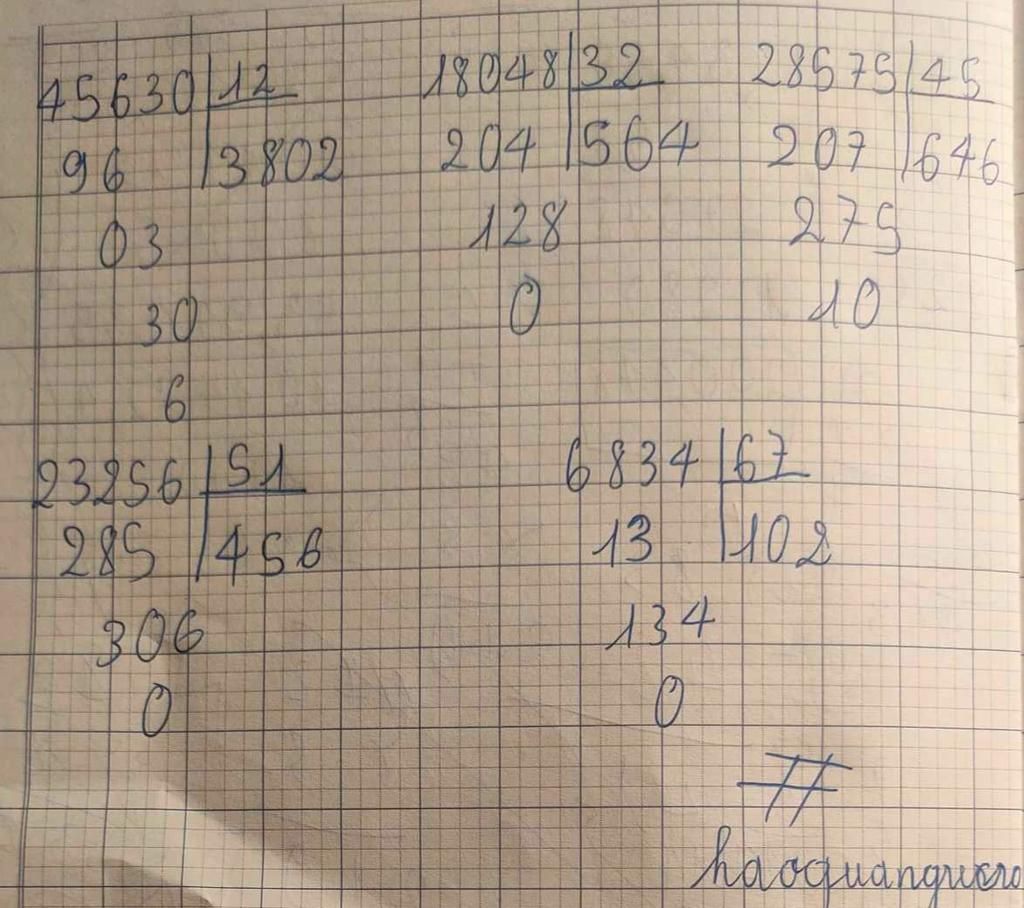 45630 12 18048 32 28575 45
96 3802 204 564 207 646
03 128 275
30 0 10
6
23256 51 6834 67
285 456 13 102
306 134
0 0
#